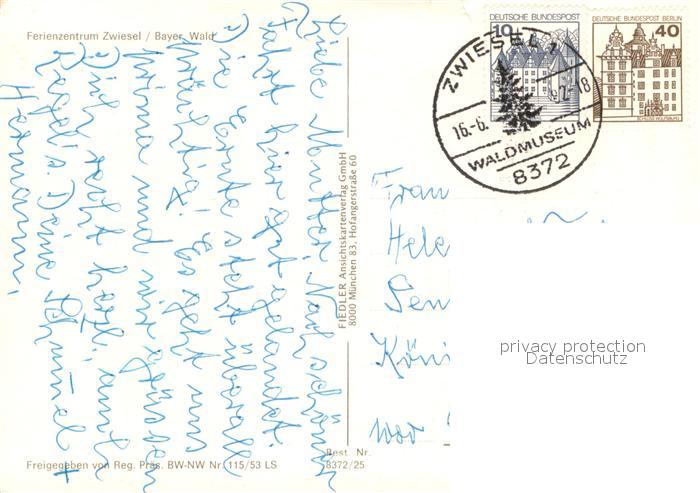 Ferienzentrum Zwiesel / Bayer. Wald
DEUTSCHE BUNDESPOST
10
DEUTSCHE BUNDESPOST BERLIN
40
SCHLOSS WOLFSBURG
ZWIESEL 1
16.-6.
-18
WALDMUSEUM
8372
Liebe Mutter! Nach schöner
Fahrt hier gut gelandet.
Die Ernte steht überall
prächtig! Es geht uns
prima und wir grüssen
Dich recht herzl. auch
Hermann.
FIEDLER Ansichtskartenverlag GmbH
8000 München 83, Hofangerstraße 60
Frau
Hele
Sen
Köni
privacy protection
Datenschutz
Freigegeben von Reg. Präs. BW-NW Nr. 115/53 LS
Best. Nr.
8372/25